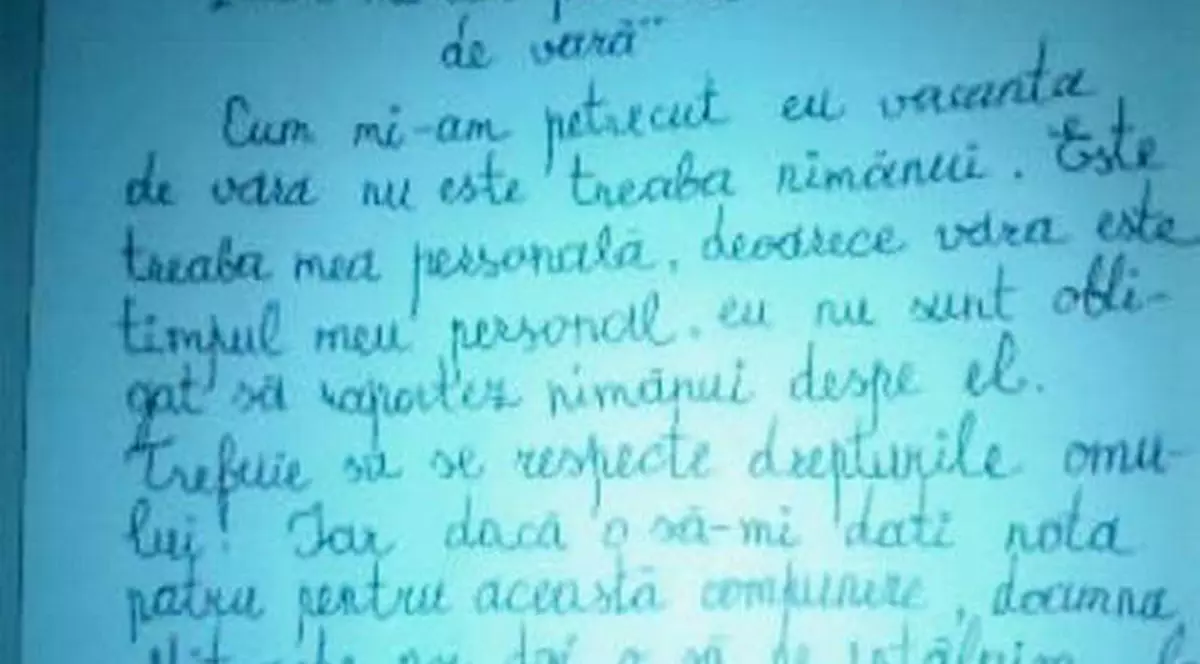 de vară"
Cum mi-am petrecut eu vacanta
de vara nu este treaba nimănui. Este
treaba mea personală, deoarece vara este
timpul meu personal. eu nu sunt obli-
gat să raportez nimănui despe el.
Trebuie să se respecte drepturile omu-
lui! Iar dacă o să-mi dati nota
patru pentru această compunere, doamna
noi doi o să ne întâlnim